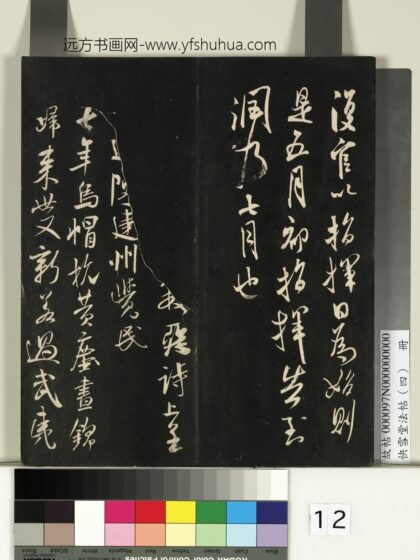 远方书画网-www.yfshuhua.com
官以指揮日為始則
是五月初指揮
潤乃七月也
詩上呈
建州覺民
七年烏帽抗黃塵晝錦
歸来新若過武夷
故帖 000097N000000000
快雪堂法帖（四） 冊
KODAK Color Control Patches
Blue Cyan Green Yellow Red Magenta White 3/Color Black
12